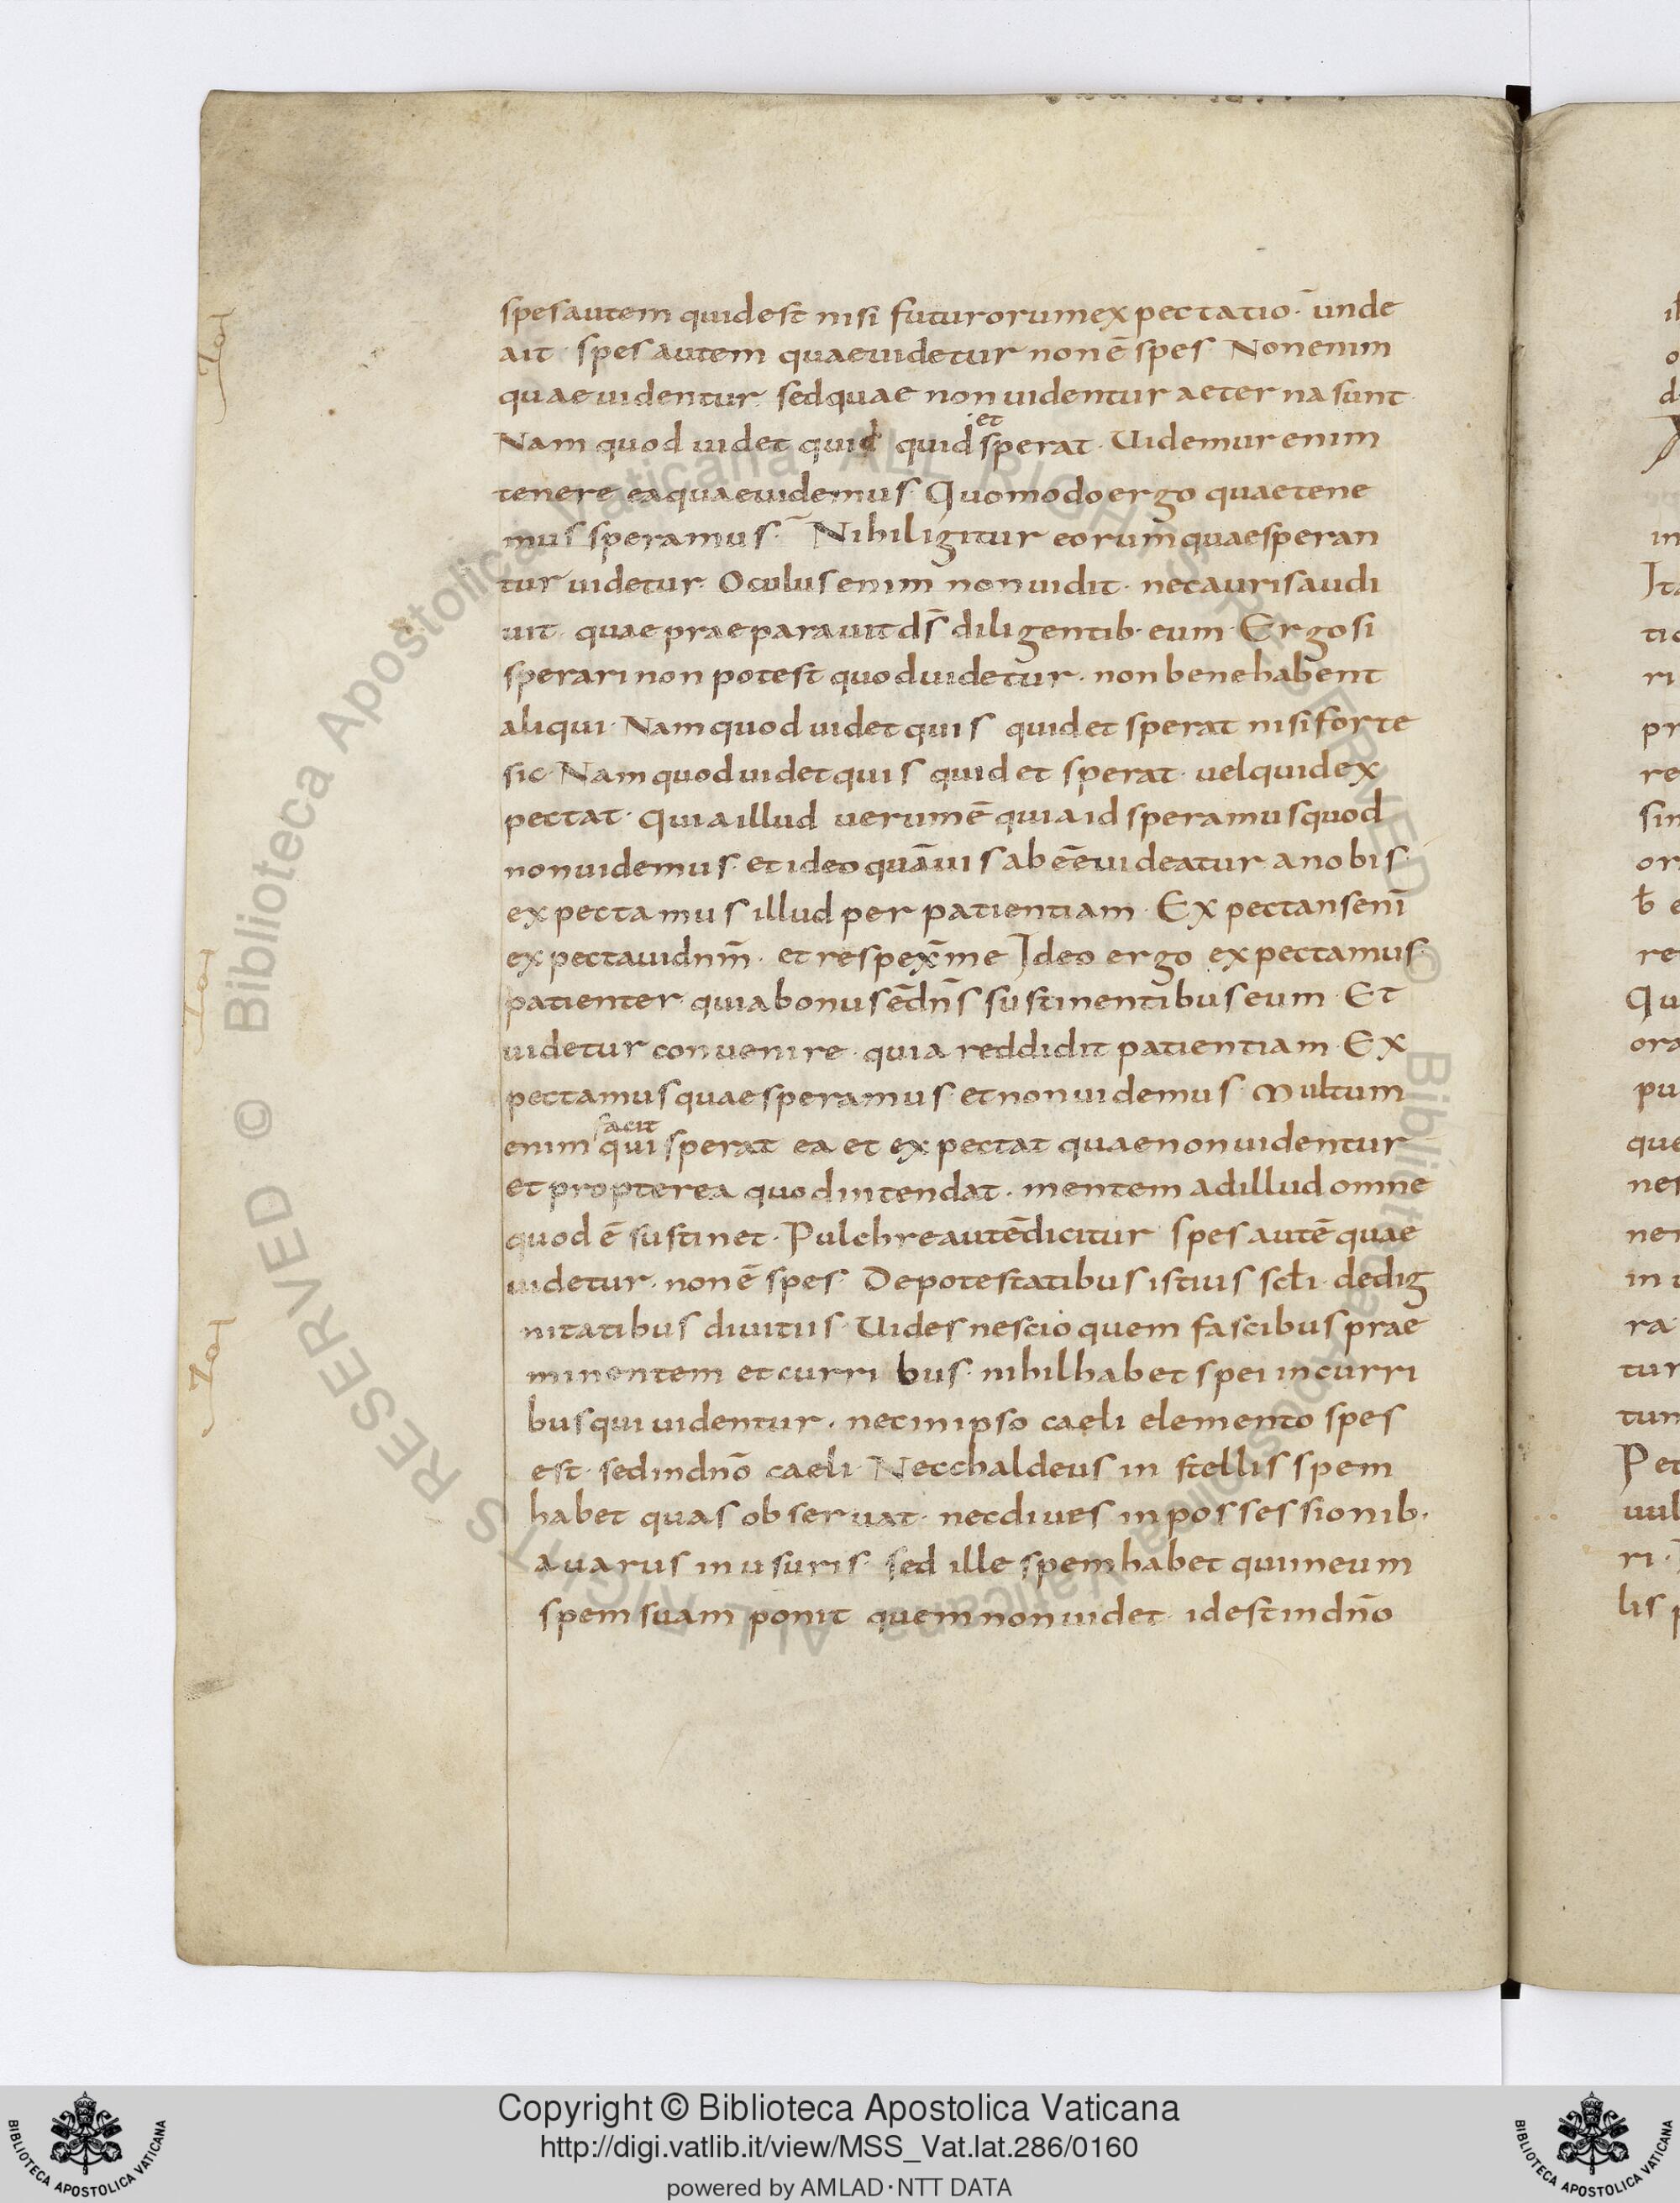 spes autem quid est nisi futurorum expectatio· unde
ait· spes autem quae uidetur non ē spes· Non enim
quae uidentur· sed quae non uidentur aeterna sunt·
et
Nam quod uidet quis quid sperat· Uidemur enim
tenere ea quae uidemus· Quomodo ergo quae tene
mus speramus· Nihil igitur eorum quae speran
tur uidetur· Oculus enim non uidit· nec auris audi
uit· quae praeparauit d̄s diligentib· eum· Ergo si
sperari non potest quod uidetur· non bene habent
aliqui· Nam quod uidet quis quid et sperat nisi forte
sic· Nam quod uidet quis quid et sperat· uel quid ex
pectat· quia illud uerum ē quia id speramus quod
non uidemus· et ideo quāuis ab eē uideatur a nobis·
expectamus illud per patientiam· Expectans enī
expectaui dnm̄· et respex̄ me Ideo ergo expectamus·
patienter· quia bonus ē dn̄s sustinentibus eum· Et
uidetur conuenire· quia reddidit patientiam· Ex
pectamus quae speramus· et non uidemus· Multum
facit
enim qui sperat ea et expectat quae non uidentur
et propterea quod intendat· mentem ad illud omne
quod ē sustinet· Pulchre autē dicitur spes autē quae
uidetur· non ē spes· De potestatibus istius scł̄i· de dig
nitatibus diuitiis· Uides nescio quem fascibus prae
minentem et curribus· nihil habet spei in curri
bus qui uidentur· nec in ipso caeli elemento spes
est· sed in dn̄o caeli· Nec chaldeus in stellis spem
habet quas obseruat· nec diues in possessionib·
auarus in usuris· sed ille spem habet qui in eum
spem suam ponit quem non uidet· id est in dn̄o
Copyright © Biblioteca Apostolica Vaticana
http://digi.vatlib.it/view/MSS_Vat.lat.286/0160
powered by AMLAD·NTT DATA
BIBLIOTECA APOSTOLICA VATICANA
BIBLIOTECA APOSTOLICA VATICANA
© Biblioteca Apostolica Vaticana ALL RIGHTS RESERVED
© Biblioteca Apostolica Vaticana ALL RIGHTS RESERVED